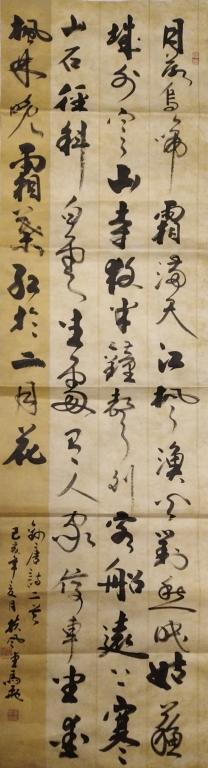 月落烏啼霜滿天江楓漁火對愁眠姑蘇
城外寒山寺夜半鐘聲到客船遠上寒
山石徑斜白雲生處有人家停車坐愛
楓林晚霜葉紅於二月花
錄唐詩二首
己亥年夏月